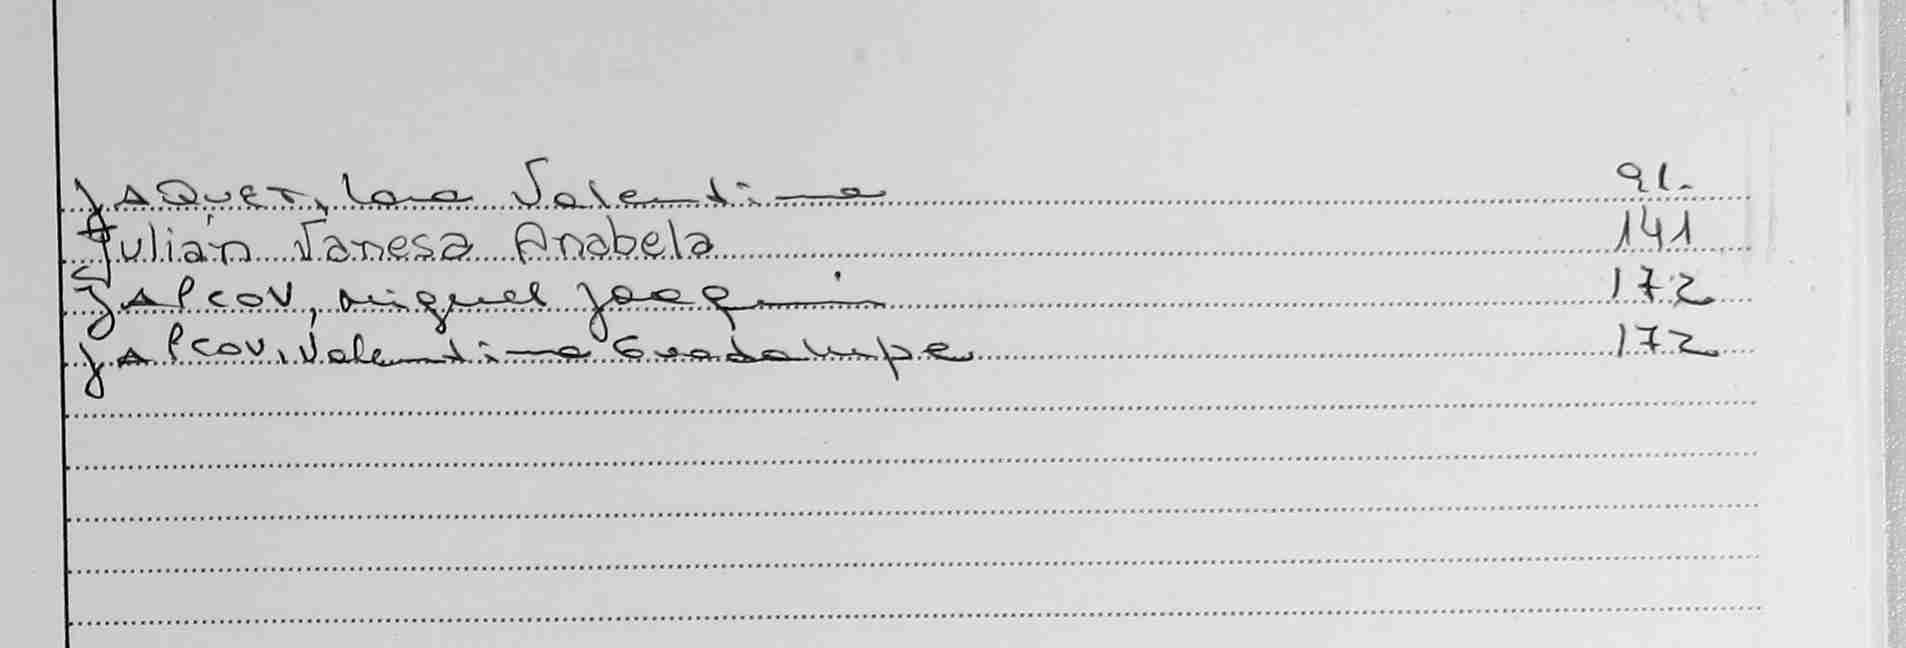 JAQUET, Lara Valentina 91.
Julián Vanesa Anabela 141
JAPCOV, Miguel Joaquin 172
JAPCOV, Valentina Guadalupe 172